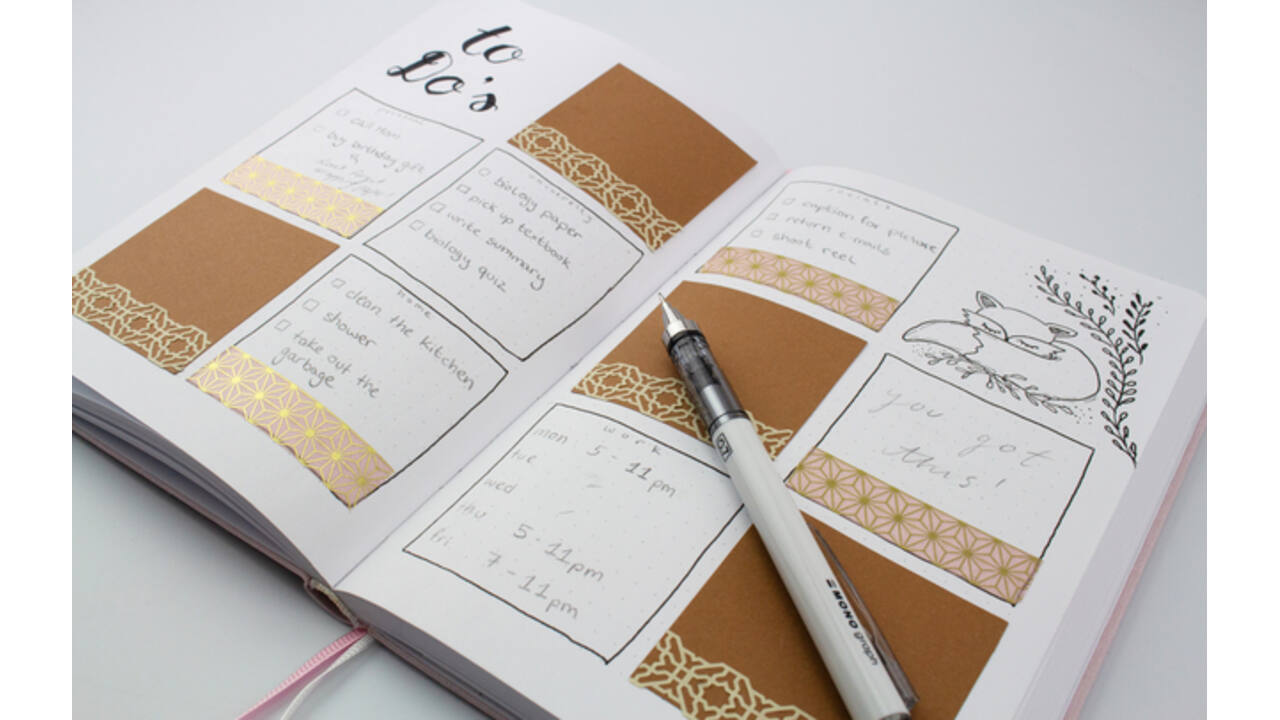 to
Do's
personal
call Mom
buy birthday gift
&
don't forget
university
biology paper
pick up textbook
write summary
biology quiz
home
clean the kitchen
shower
take out the
garbage
caption for picture
return e-mails
shoot reel
work
mon 5-11pm
tue -
wed -
thu 5-11pm
fri 7-11pm
you got
this!
MONO graph